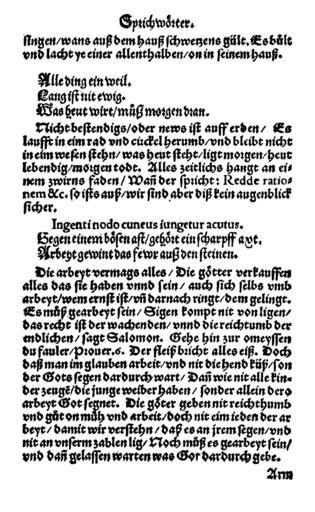 Sprichwörter.
singen/wans auß dem hauß schwetzens gült. Es hült
vnd lacht ye einer allenthalben/on in seinem hauß.
Alle ding ein weil.
Lang ist nit ewig.
Was heut wirt/müß morgen dran.
Nicht bestendigs/oder news ist auff erden/ Es
laufft in eim rad vnd cückel herumb/vnd bleibt nicht
in eim wesen stehn/was heut steht/ligt morgen/heut
lebendig/morgen todt. Alles zeitlichs hangt an ei-
nem zwirns faden/ Wañ der spricht: Redde ratio-
nem &c. so ists auß/wir sind aber diß kein augenblick
sicher.
Ingenti nodo cuneus iungetur acutus.
Gegen einem bösen ast/gehört ein scharpff axt.
Arbeyt gewint das fewr auß den steinen.
Die arbeyt vermags alles/ Die götter verkauffen
alles das sie haben vnnd sein/ auch sich selbs vmb
arbeyt/wem ernst ist/vñ darnach ringt/dem gelingt.
Es müß gearbeyt sein/ Sigen kompt nit von ligen/
das recht ist der wachenden/vnnd die reichtumb der
endlichen/ sagt Salomon. Gehe hin zur omeyssen
du fauler/Prouer.6. Der fleiß bricht alles eiß. Doch
daß man im glauben arbeit/vnd nit die hend küß/son
der Gots segen dardurch wart/ Dañ wie nit alle kin-
der zeugẽ/die junge weiber haben/ sonder allein dero
arbeyt Got segnet. Die göter geben nit reichthumb
vnd güt on müh vnd arbeit/doch nit eim ieden der ar
beyt/damit wir verstehn/daß es an jrem segen/vnd
nit an vnserm zablen lig/Noch müß es gearbeyt sein/
vnd dañ gelassen warten was Got dardurch gebe.
Arm